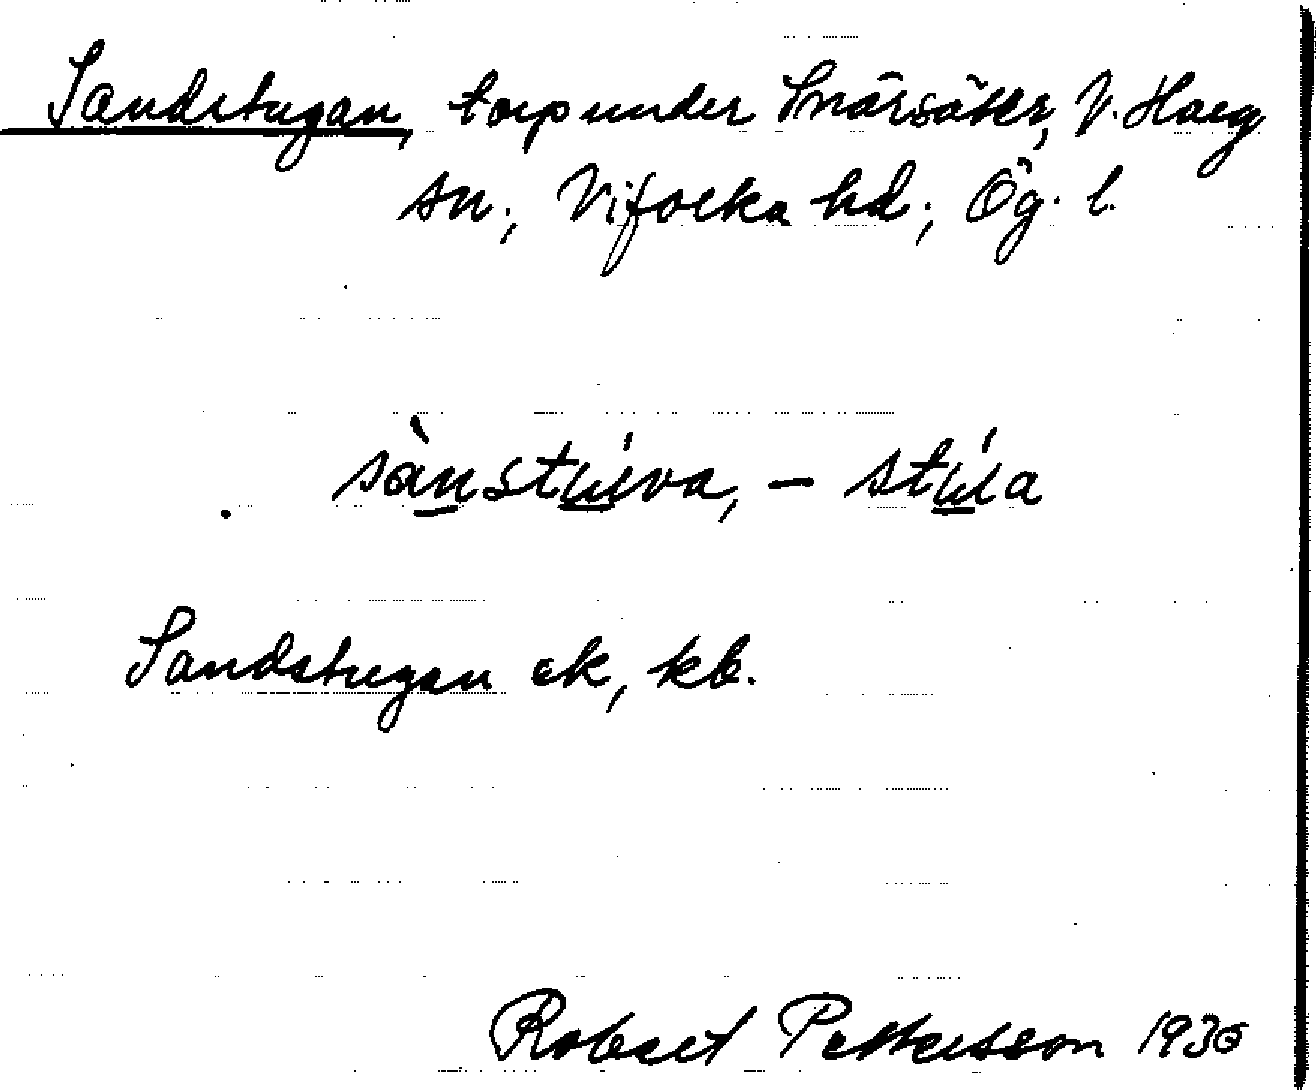 Sandstugan, torp under Snårsäter, V. Harg
sn.; Vifolka hd.; Ög. l.
sànstúva, – stúa
Sandstugan ek, kb.
Robert Pettersson 1936